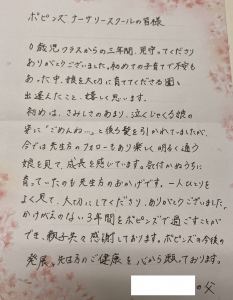 ポピンズナーサリースクールの皆様
0歳児クラスからの三年間、見守ってくださり
ありがとうございました。初めての子育てで不安も
あった中、娘を大切に育ててくださる園に
出逢えたこと、嬉しく思います。
初めは、さみしさのあまり、泣じゃくる娘の
姿に「ごめんね…」と後ろ髪を引かれていましたが、
今では先生方のフォローもあり楽しく明るく通う
娘を見て、成長を感じています。気付かぬうちに
育ってったのも先生方のおかげです。一人ひとりを
よく見て、大切にしてくださり、ありがとうございました。
かけがえのない3年間をポピンズで過ごすことが
でき、親子共々感謝しております。ポピンズの今後の
発展、先生方のご健康を心から願っております。
の父